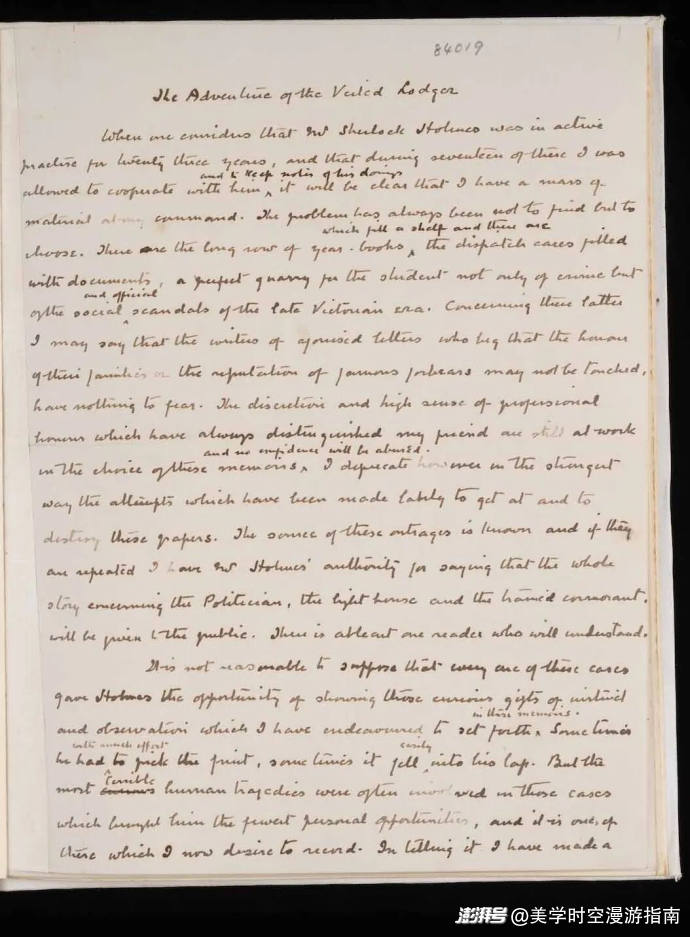 84019
The Adventure of the Veiled Lodger
When one considers that Mr Sherlock Holmes was in active
practise for twenty three years, and that during seventeen of these I was
and to keep notes of his doings
allowed to cooperate with him ‸ it will be clear that I have a mass of
material at my command. The problem has always been not to find but to
which fill a shelf and there are
choose. There are the long row of year-books ‸ the dispatch cases filled
with documents, a perfect quarry for the student not only of crime but
and official
of the social ‸ scandals of the late Victorian era. Concerning these latter
I may say that the writers of agonised letters who beg that the honour
of their families or the reputation of famous forbears may not be touched,
have nothing to fear. The discretion and high sense of professional
honour which have always distinguished my friend are still at work
and no confidence will be abused.
in the choice of these memoirs ‸ I deprecate however in the strongest
way the attempts which have been made lately to get at and to
destroy these papers. The source of these outrages is known and if they
are repeated I have Mr Holmes' authority for saying that the whole
story concerning the Politician, the light house and the trained cormorant.
will be given to the public. There is at least one reader who will understand.
It is not reasonable to suppose that every one of these cases
gave Holmes the opportunity of showing those curious gifts of instinct
in these memoirs.
and observation which I have endeavoured to set forth ‸ Sometimes
with much effort easily
he had ‸ to pick the fruit, sometimes it fell ‸ into his lap. But the
terrible
most human tragedies were often involved in those cases
which brought him the fewest personal opportunities, and it is one of
these which I now desire to record. In telling it I have made a
澎湃号 @美学时空漫游指南